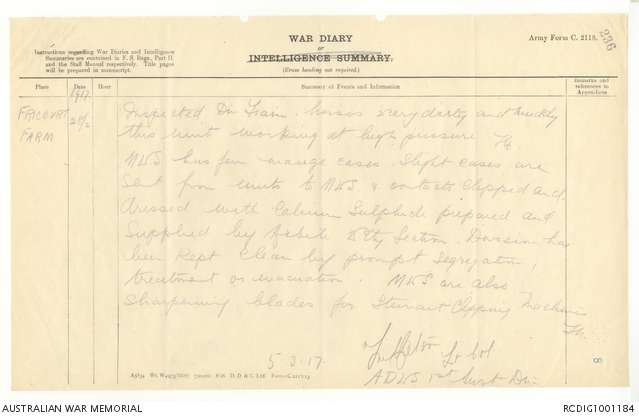 WAR DIARY
or
INTELLIGENCE SUMMARY.
(Erase heading not required.)
Army Form C. 2118.
236
Instructions regarding War Diaries and Intelligence
Summaries are contained in F. S. Regs., Part II.
and the Staff Manual respectively. Title pages
will be prepared in manuscript.
Place
Date
Hour
Summary of Events and Information
Remarks and
references to
Appendices
1917
FRICOURT
FARM
28/2
Inspected Div Train. horses very dirty and muddy
this unit working at high pressure The
MVS has few mange cases. Slight cases are
sent from units to MVS & contacts clipped and
dressed with Calcium Sulphide prepared and
supplied by Vety Section. Division has
been kept clean by prompt segregation,
treatment or evacuation. MVS are also
sharpening blades for Stewart Clipping Machines
5.3.17
Lt Col
ADVS 1st Aust Div
8
AUSTRALIAN WAR MEMORIAL
RCDIG1001184